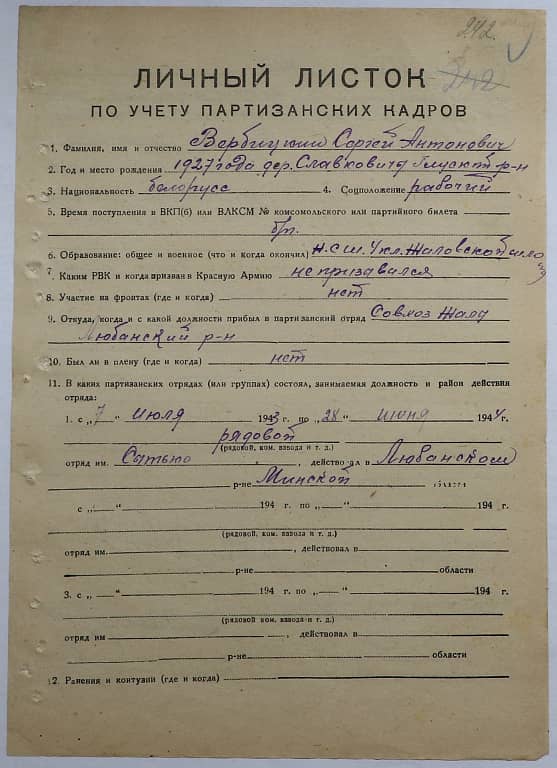 242.
242
ЛИЧНЫЙ ЛИСТОК
ПО УЧЕТУ ПАРТИЗАНСКИХ КАДРОВ
1. Фамилия, имя и отчество Вербицкий Сергей Антонович
2. Год и место рождения 1927 года дер. Славковичи Глусск. р-н
3. Национальность белорусс 4. Соцположение рабочий
5. Время поступления в ВКП(б) или ВЛКСМ № комсомольского или партийного билета
б/п.
6. Образование: общее и военное (что и когда окончил) Н.С.Ш. 4 кл. Жаловской школ
7. Каким РВК и когда призван в Красную Армию не призавался
8. Участие на фронтах (где и когда) нет
9. Откуда, когда и с какой должности прибыл в партизанский отряд Совхоз Жалы
Любанский р-н
10. Был ли в плену (где и когда) нет
11. В каких партизанских отрядах (или группах) состоял, занимаемая должность и район действия
отряда:
1. с „7“ июля 1943 г. по „28“ июня 1944 г.
рядовой
(рядовой, ком. взвода и т. д.)
отряд им. Сатыко, действовал в Любанском
р-не Минской области
с „—“ 194 г. по „—“ 194 г.
(рядовой, ком. взвода и т. д.)
отряд им. , действовал в
р-не области
3. с „—“ 194 г. по „—“ 194 г.
(рядовой ком. взвода и т. д.)
отряд им , действовал в
р-не области
12. Ранения и контузии (где и когда)